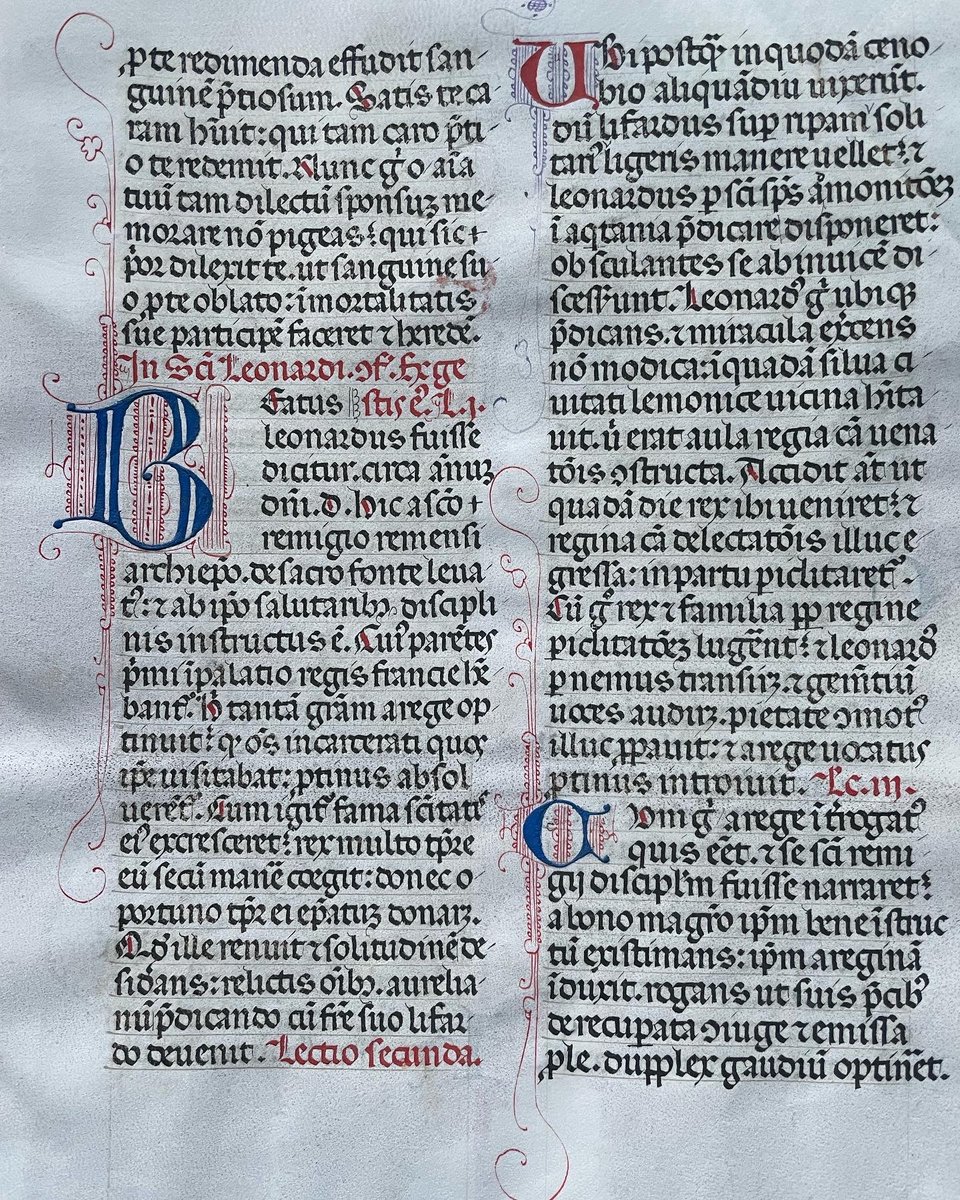 ꝓ te redimenda effudit san-
guinē p̄tiosum. Satis te ca-
ram h̄uit: qui tam caro p̄ti-
o te redemit. Nunc g̊ o aīa
tuū tam dilectū sponsuꝫ me-
morare nō pigeas: qui sic
p̄or dilexit te. ut sanguine su-
o ꝓ te oblato: īmortalitatis
sue participē faceret ⁊ heredē.
In Scī Leonardi. ꝯf. Ex ge
Beatus stis eꝰ. L. j.
leonardus fuisse
dicitur. circa ānuꝫ
dnī. d. Hic a scō
remigio remensi
archiep̄o. de sacro fonte leua
tꝰ: ⁊ ab ip̄o salutaribꝫ discipli
nis instructus ē. Cuiꝰ parētes
p̄mi ī palatio regis francie hr̄
bant᷑. Hic tantā gr̄am a rege op-
tinuit: qꝫ oēs incarcerati quos
ip̄e uisitabat: ꝓtinus absol
uerēt᷑. Cum igit᷑ fama scītatis
eiꝰ excresceret: rex multo tp̄re
eū secū manē coegit: donec o-
portuno tp̄r ei ep̄atuꝫ donaꝛꝫ.
Qd̓ ille renuit ⁊ solitudinē de-
sid̓ans: relictis oībꝫ. aurelia-
nū p̄dicando cū fr̄e suo lifar-
do deuenit. Lectio secunda.
Ubi postqꝫ in quodā ceno-
bio aliquādiu uixerūt.
dū lifardus sup ripam soli
tari᷑ ligeris manere uellet: ⁊
leonardus ꝑ scī sp̄s āmonitōeꝫ
ī aq̄tania p̄dicare disponeret:
obsculantes se ab inuicē di-
scesserunt. Leonardꝰ g̊ ubiqꝫ
p̄dicans. ⁊ miracula exercens
nō modica: ī quadā silua ci
uitati lemonice uicina hīta
uit. ī q̄ erat aula regia cā uena
tōis ꝯstructa. Accidit āt ut
quadā die rex ibi ueniret: ⁊
regina cā delectatōis illuc e
gressa: in partu piclitaret᷑.
Cū g̊ rex ⁊ familia ꝓp regine
piclitatōeꝫ lugēnt: ⁊ leonardꝰ
ꝑ nemus transiꝛꝫ. ⁊ gemītuū
uoces audiꝛꝫ. pietate ꝯmotꝰ
illuc ꝓꝑauit: ⁊ a rege uocatus
ꝓtinus introiuit. Lc. iij.
Cum g̊ a rege īt̓rogatꝰ
quis eēt. ⁊ se scī remi
gij discipl̄m fuisse narraret:
a bono magr̄o ip̄m bene īstruc
tū existimans: ip̄m a reginā
īduxit. rogans ut suis p̄cibꝰ
de recuꝑata ꝯiuge ⁊ emissa
ꝓle. dupplex gaudiū optinēt.